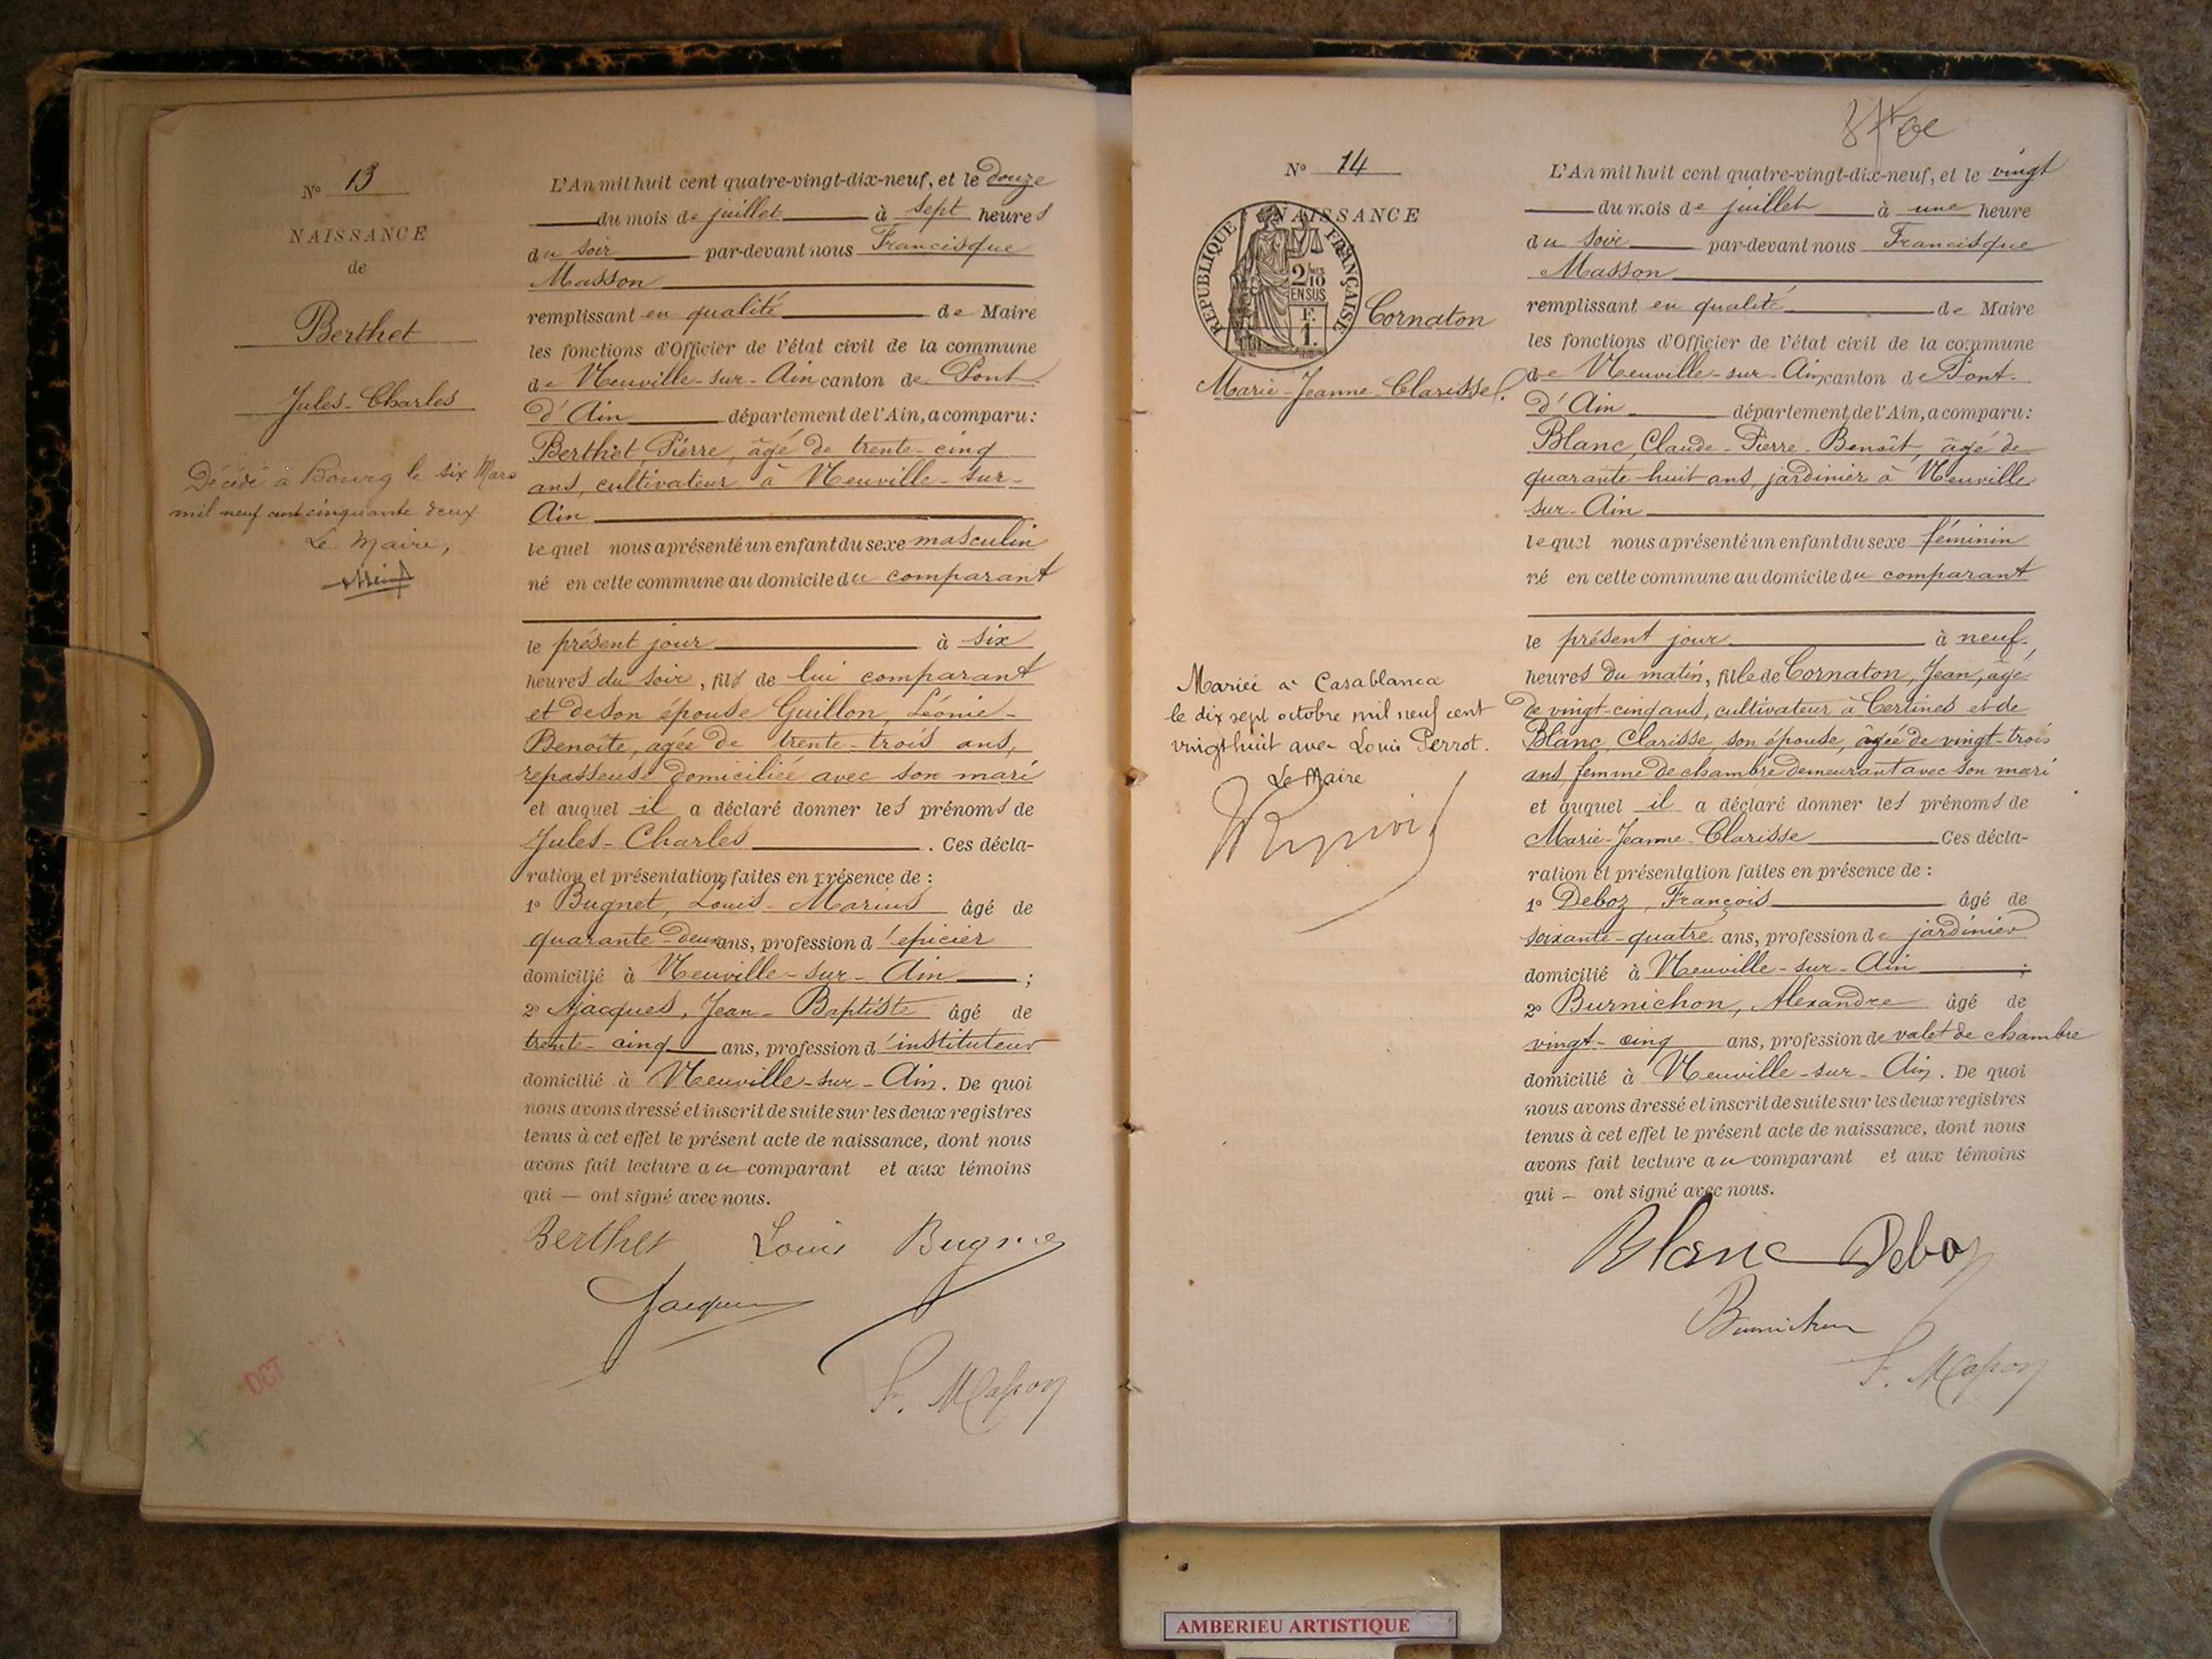 N° 13
NAISSANCE
de
Berthet
Jules-Charles
Décédé à Bourg le six Mars
mil neuf cent cinquante deux
Le Maire,
L'An mil huit cent quatre-vingt-dix-neuf, et le douze
du mois de juillet à sept heures
du soir par-devant nous Francisque
Masson
remplissant en qualité de Maire
les fonctions d'Officier de l'état civil de la commune
de Neuville-sur-Ain canton de Pont-
d'Ain département de l'Ain, a comparu:
Berthet, Pierre, âgé de trente-cinq
ans, cultivateur à Neuville-sur-
Ain
lequel nous a présenté un enfant du sexe masculin
né en cette commune au domicile du comparant
le présent jour à six
heures du soir, fils de lui comparant
et de son épouse Guillon, Léonie-
Benoîte, agée de trente-trois ans,
repasseuse domiciliée avec son mari
et auquel il a déclaré donner les prénoms de
Jules-Charles. Ces décla-
ration et présentation faites en présence de :
1° Bugnet, Louis-Marius âgé de
quarante-deux ans, profession d'épicier
domicilié à Neuville-sur-Ain ;
2° Ajacques, Jean-Baptiste âgé de
trente-cinq ans, profession d'instituteur
domicilié à Neuville-sur-Ain. De quoi
nous avons dressé et inscrit de suite sur les deux registres
tenus à cet effet le présent acte de naissance, dont nous
avons fait lecture au comparant et aux témoins
qui — ont signé avec nous.
Berthet Louis Bugnet
F. Masson
OCT
N° 14
NAISSANCE
REPUBLIQUE FRANÇAISE
2/10
EN SUS
F.
1.
Cornaton
Marie-Jeanne-Clarisse.
Mariée à Casablanca
le dix sept octobre mil neuf cent
vingt huit avec Louis Perrot.
Le Maire
L'An mil huit cent quatre-vingt-dix-neuf, et le vingt
du mois de juillet à une heure
du soir par-devant nous Francisque
Masson
remplissant en qualité de Maire
les fonctions d'Officier de l'état civil de la commune
de Neuville-sur-Ain canton de Pont-
d'Ain département de l'Ain, a comparu:
Blanc, Claude-Pierre-Benoît, âgé de
quarante-huit ans, jardinier à Neuville
sur-Ain
lequel nous a présenté un enfant du sexe féminin
né en cette commune au domicile du comparant
le présent jour à neuf
heures du matin, fille de Cornaton, Jean, âgé
de vingt-cinq ans, cultivateur à Certines et de
Blanc, Clarisse, son épouse, âgée de vingt-trois
ans femme de chambre demeurant avec son mari
et auquel il a déclaré donner les prénoms de
Marie-Jeanne-Clarisse Ces décla-
ration et présentation faites en présence de :
1° Deboz, François âgé de
soixante-quatre ans, profession de jardinier
domicilié à Neuville-sur-Ain ;
2° Burnichon, Alexandre âgé de
vingt-cinq ans, profession de valet de chambre
domicilié à Neuville-sur-Ain. De quoi
nous avons dressé et inscrit de suite sur les deux registres
tenus à cet effet le présent acte de naissance, dont nous
avons fait lecture au comparant et aux témoins
qui — ont signé avec nous.
Blanc Deboz
Burnichon
F. Masson
AMBERIEU ARTISTIQUE